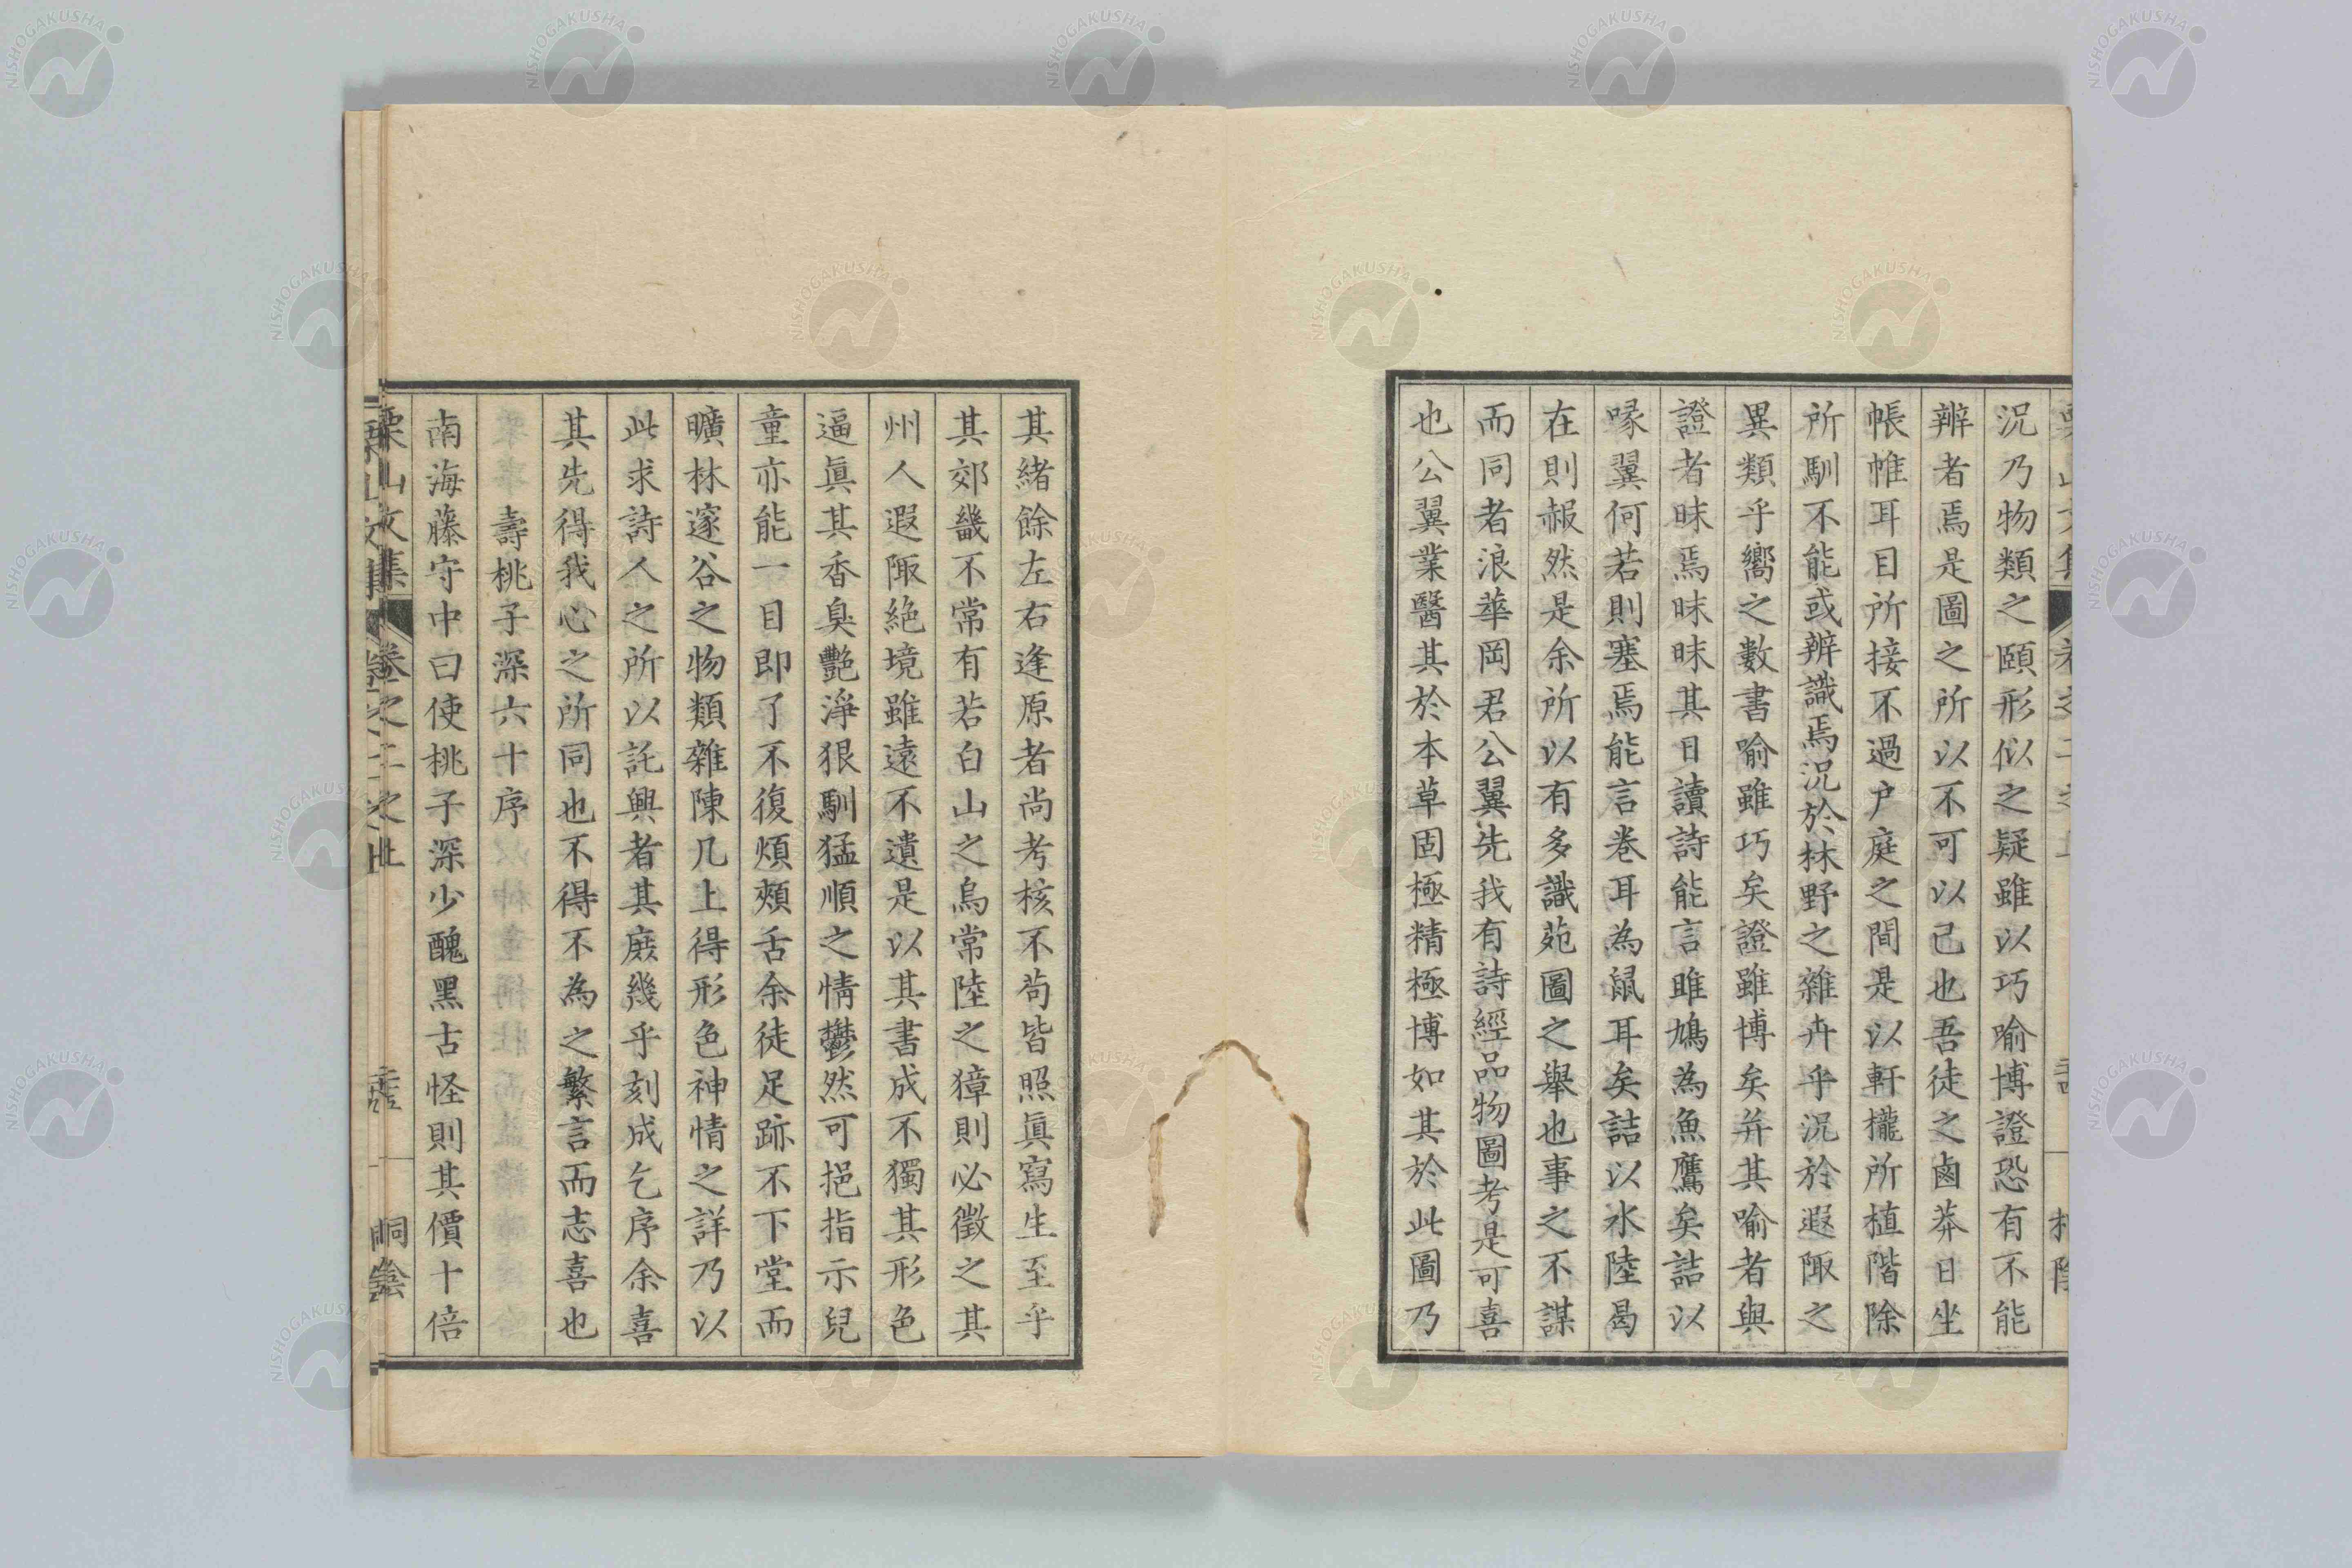 況乃物類之頤形似之疑雖以巧喻博證恐有不能
辨者焉是圖之所以不可以已也吾徒之鹵莽日坐
帳帷耳目所接不過户庭之間是以軒櫳所植階除
所馴不能或辨識焉況於林野之雜卉乎況於遐陬之
異類乎嚮之數書喻雖巧矣證雖博矣并其喻者與
證者昧焉昧昧其日讀詩能言雎鳩為魚鷹矣詰以
喙翼何若則塞焉能言卷耳為鼠耳矣詰以水陸曷
在則赧然是余所以有多識苑圖之舉也事之不謀
而同者浪華岡君公翼先我有詩經品物圖考是可喜
也公翼業醫其於本草固極精極博如其於此圖乃
其緒餘左右逢原者尚考核不苟皆照眞寫生至乎
其郊畿不常有若白山之鳥常陸之獐則必徵之其
州人遐陬絶境雖遠不遺是以其書成不獨其形色
逼眞其香臭艷淨狠馴猛順之情鬱然可挹指示兒
童亦能一目即了不復煩頰舌余徒足跡不下堂而
曠林邃谷之物類雜陳几上得形色神情之詳乃以
此求詩人之所以託興者其庶幾乎刻成乞序余喜
其先得我心之所同也不得不為之繁言而志喜也
壽桃子深六十序
南海藤守中曰使桃子深少醜黑古怪則其價十倍
栗山文集 卷之二之上
桐陰
NISHOGAKUSHA